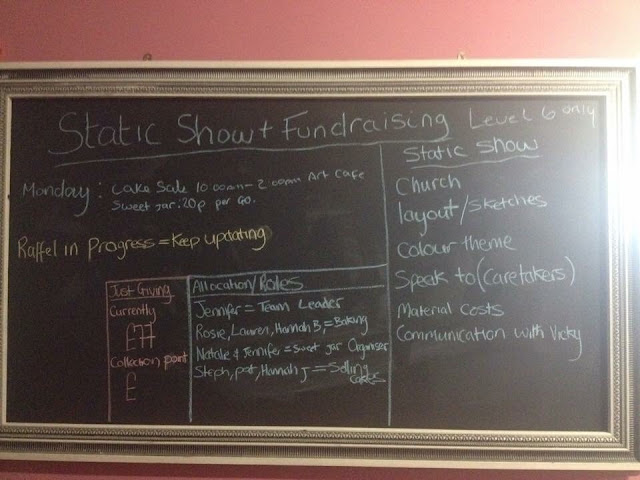 Static Show + Fundraising
Monday: Cake Sale 10:00am - 2:00pm Art Cafe
Sweet jar: 20p per Go.
Raffel in Progress = Keep updating
Just Giving
Currently
£77
Collection point
£
Allocation/Roles
Jennifer = Team Leader
Rosie, Lauren, Hannah B, = Baking
Natalie & Jennifer = Sweet jar Organiser
Steph, pat, Hannah J = Selling
cakes
Level 6 only
Static Show
Church
layout/Sketches
Colour theme
Speak to (Caretakers)
Material Costs
Communication with Vicky